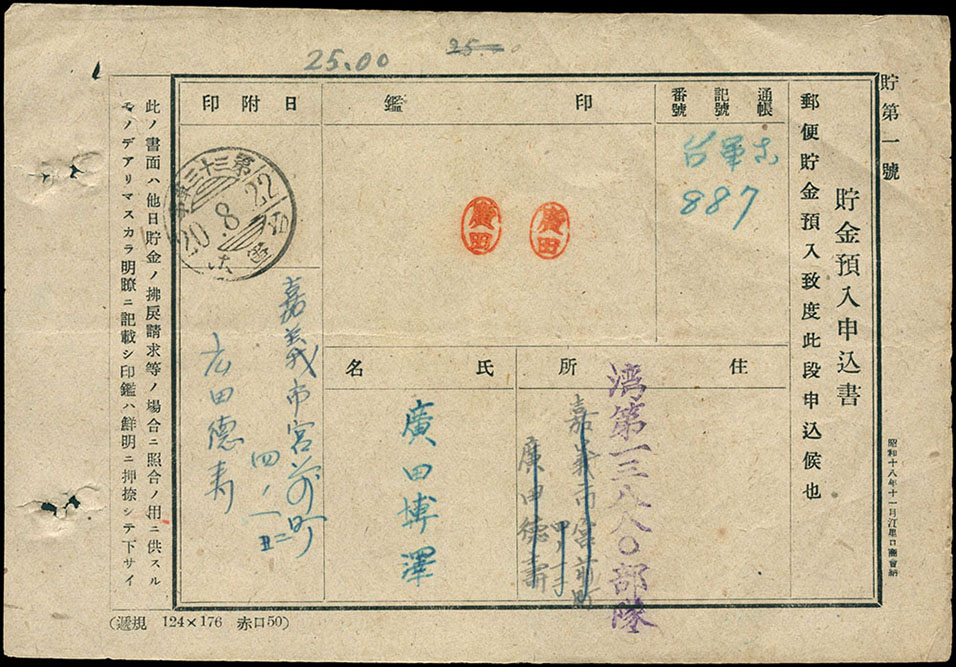 25.00
25
貯第一號
貯金預入申込書
郵便貯金預入致度此段申込候也
昭和十八年十一月江星口商會納
通帳
記號
番號
台軍あ
887
印鑑
廣田
廣田
日附印
第三十三
20.8.22
住所
湾第一三八八〇部隊
嘉義市宮前町
廣田德壽
氏名
廣田博澤
嘉義市宮前町
四ノ一二
広田德寿
此ノ書面ハ他日貯金ノ拂戾請求等ノ場合ニ照合ノ用ニ供スル
モノデアリマスカラ明瞭ニ記載シ印鑑ハ鮮明ニ押捺シテ下サイ
(遞規 124×176 赤口50)